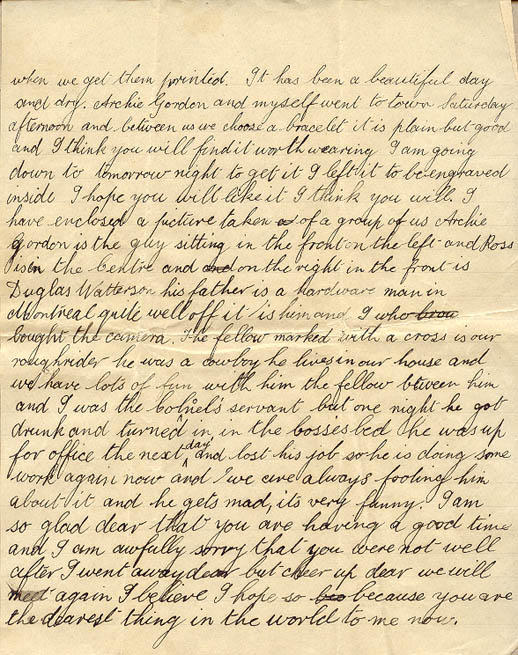 when we get them printed. It has been a beautiful day
and dry. Archie Gordon and myself went to town Saturday
afternoon and between us we choose a bracelet it is plain but good
and I think you will find it worth wearing I am going
down to tomorrow night to get it I left it to be engraved
inside I hope you will like it I think you will. I
have enclosed a picture taken of a group of us Archie
Gordon is the guy sitting in the front on the left and Ross
is in the Centre and and on the right in the front is
Duglas Watterson his father is a hardware man in
Montreal quite well off it is him and I who
bought the camera. The fellow marked with a cross is our
roughrider he was a cowboy he lives in our house and
we have lots of fun with him the fellow btween him
and I was the Colnel's servant but one night he got
drunk and turned in, in the bosses bed he was up
for office the next day and lost his job so he is doing some
work again now and we are always fooling him
about it and he gets mad, its very funny. I am
so glad dear that you are having a good time
and I am awfully sorry that you were not well
after I went away dear but cheer up dear we will
meet again I believe I hope so because you are
the dearest thing in the world to me now.